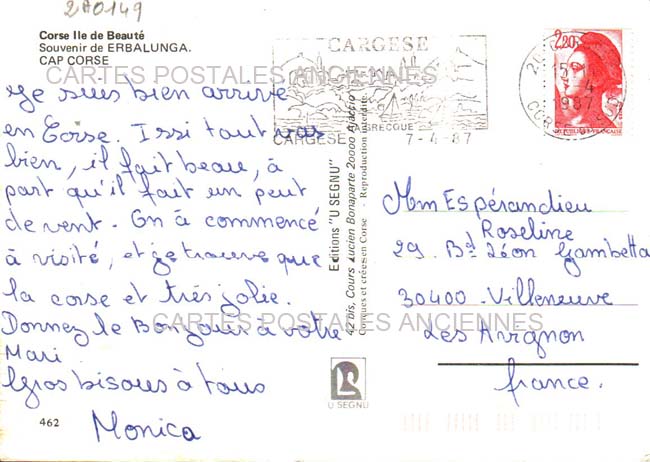 2A0149
Corse Ile de Beauté
Souvenir de ERBALUNGA.
CAP CORSE
CARTES POSTALES ANCIENNES
Je suis bien arrivée
en Corse. Issi tout vas
bien, il fait beau, à
part qu'il fait un peut
de vent. On à commencé
à visité, et je trouve que
la corse et très jolie.
Donnez le Bonjour à votre
Mari
Gros bisous à tous
Monica
462
CARGESE
CARGESE
7-4-87
Editions "U SEGNU"
42 bis, Cours Lucien Bonaparte 20000 Ajaccio
Conçues et créées en Corse - Reproduction interdite
U SEGNU
2,20
1987
Mm Espérandieu
Roseline
29. Bd Léon Gambetta
30400 - Villeneuve
Les Avignon
france.
CARTES POSTALES ANCIENNES